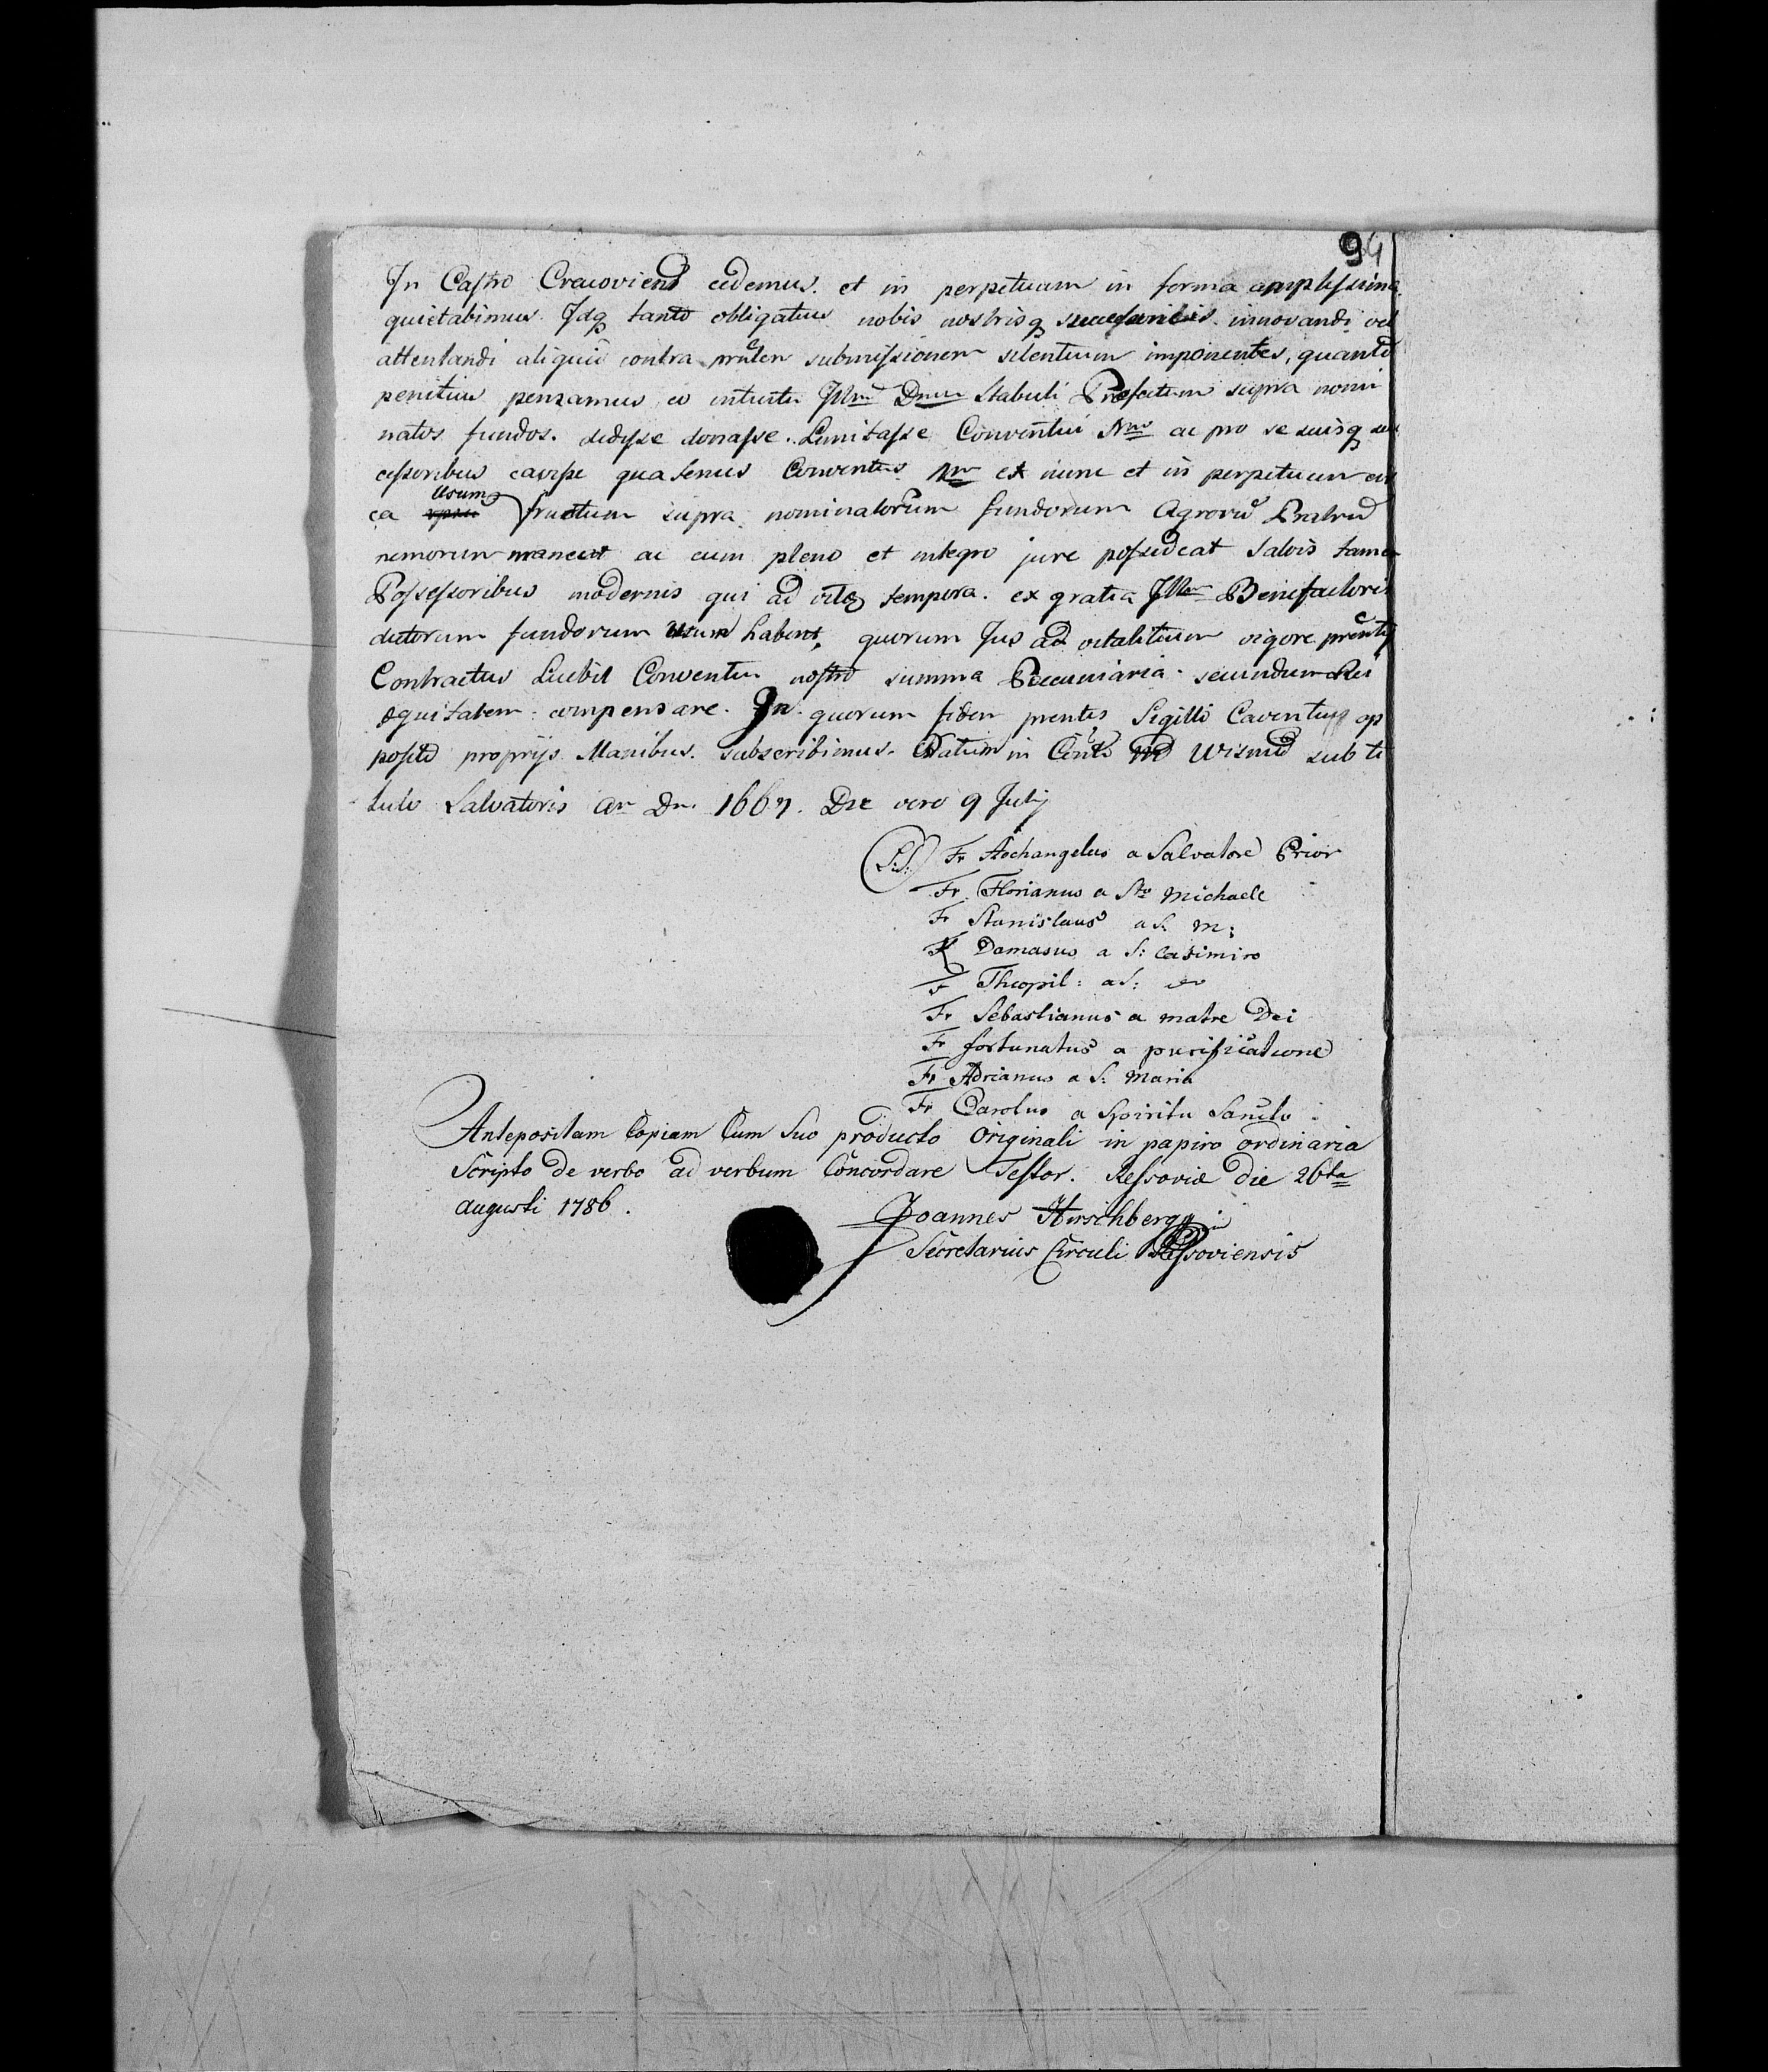 94
In Castro Cracoviensi cedemus. et in perpetuam in forma amplissima
quietabimus. Idq tanto obligatius nobis nostrisq successoribus innovandi vel
attentandi aliquid contra pñtem submissionem silentium imponentes, quanto
penitius pensamus eo intuitu Illm̃ Dnum Stabuli Præfectum supra nomi
natos fundos. dedisse donasse. Limitasse Conventui Nro ac pro se suisq suc
cessoribus cavisse quatenus Conventus Nr ex nunc et in perpetuum
Usum
ea fructum supra nominatorum fundorum Agrorũ Pratorũ
nemorum maneat ac cum pleno et integro jure possideat Salvis tamen
Possessoribus modernis qui ad vitæ tempora. ex gratia Illmi Benefactoris
dictorum fundorum Usum habent, quorum Jus ad vitalitium vigore prêntis
Contractus Licebit Conventui nostro summa Pecuniaria. secundum Rei
æquitatem. compensare. In quorum fidem prentes Sigillo Conventus op
posito proprijs Manibus. subscribimus. Datum in Contu no Wisnid sub ti
tulo Salvatoris An Dn. 1667. Die vero 9 Julij
(L.S.) Fr Archangelus a Salvatore Prior
Fr Florianus a Sto Michaele
Fr Stanislaus a S. M:
Fr Damasus a S: Casimiro
Fr Theopil: a S:
Fr Sebastianus a matre Dei
Fr fortunatus a purificatione
Fr Adrianus a S: Maria
Fr Carolus a Spiritu Sancto
Antepositam Copiam Cum Suo producto Originali in papiro ordinaria
Scripto de verbo ad verbum Concordare Testor. Ressoviæ die 26ta
augusti 1786.
Joannes Hirschberg
Secretarius Circuli Ressoviensis